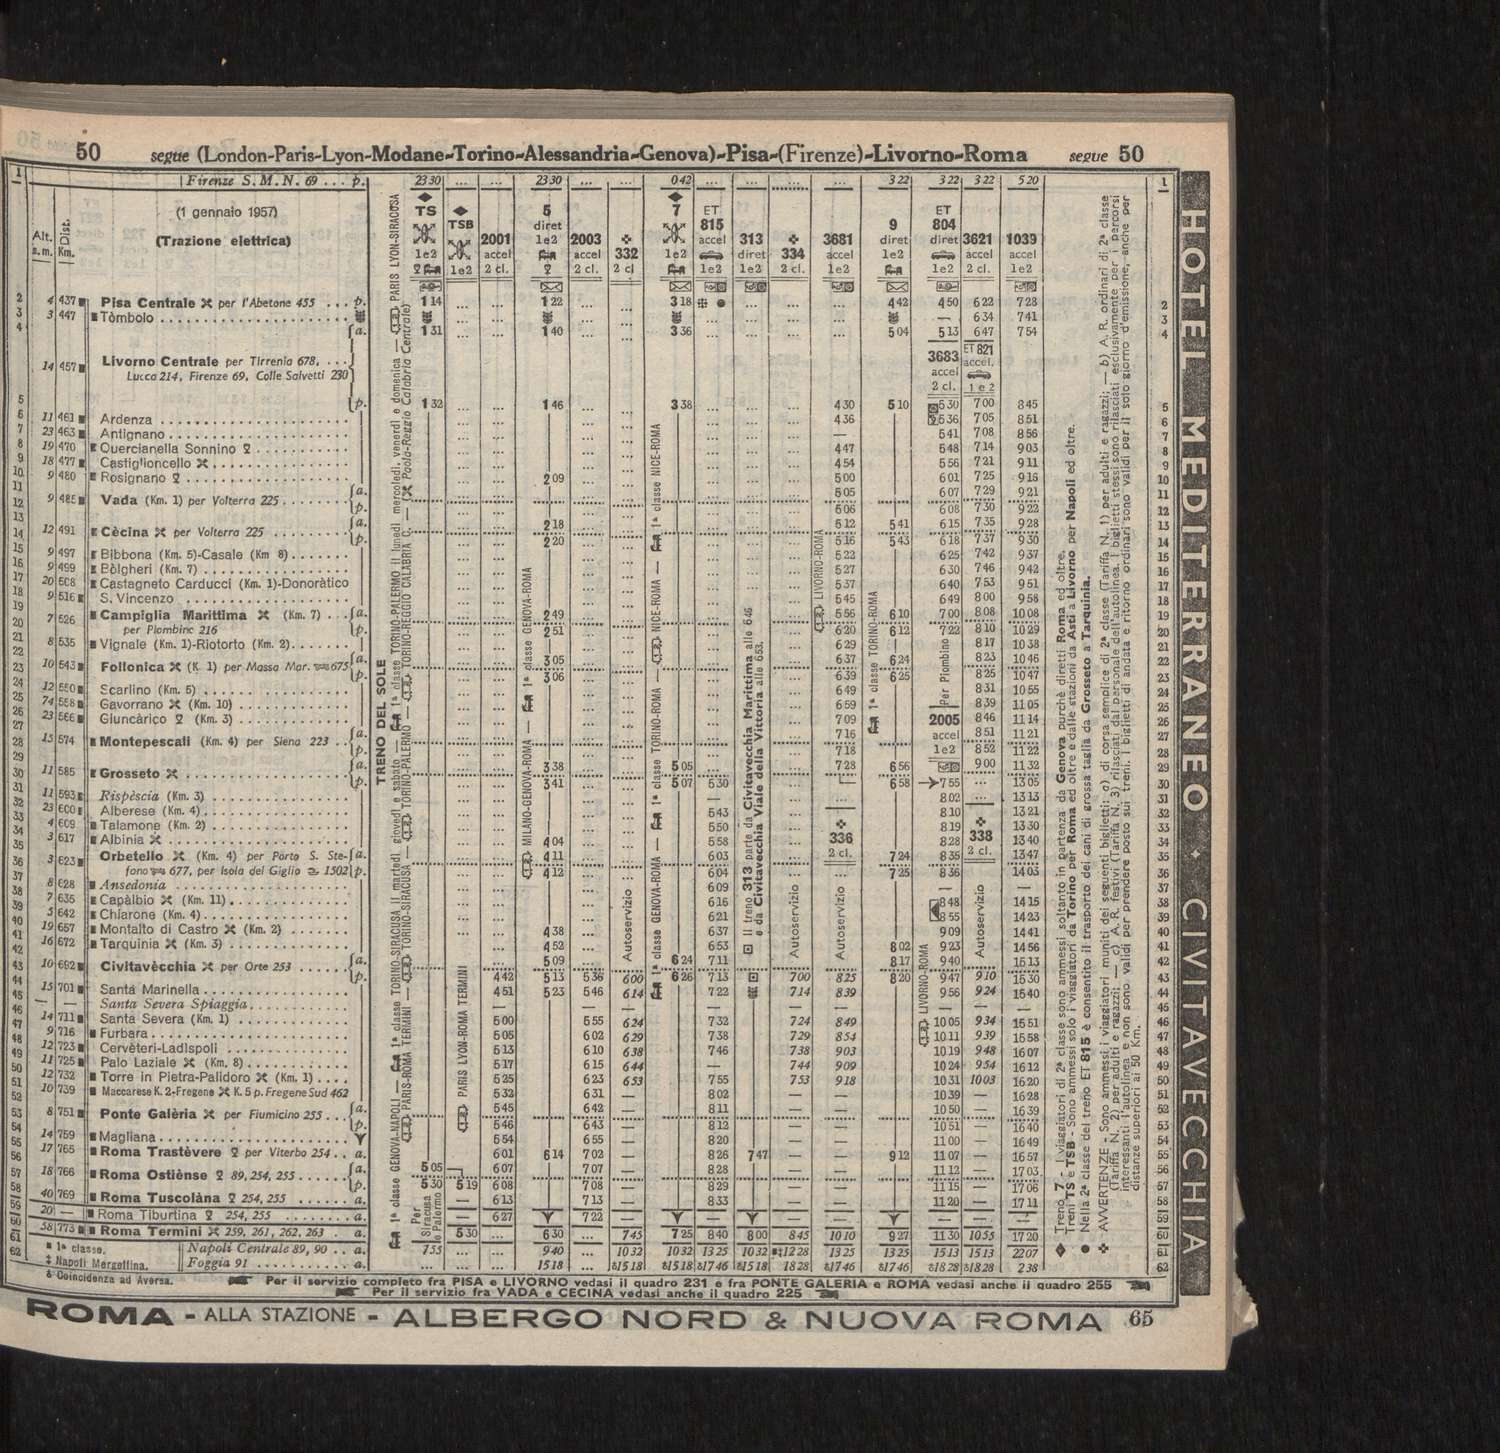 50 segue (London-Paris-Lyon-Modane-Torino-Alessandria-Genova)-Pisa-(Firenze)-Livorno-Roma segue 50
1 Firenze S. M. N. 69 . . . p. 23 30 ... ... 23 30 ... ... 0 42 ... ... ... ... 3 22 3 22 3 22 5 20 1
(1 gennaio 1957)
(Trazione elettrica)
Alt. s.m. Dist. Km.
TS 1e2
TSB 1e2
2001 accel 2 cl.
5 diret 1e2
2003 accel 2 cl.
332 2 cl
7 1e2
ET 815 accel 1e2
313 diret 1e2
334 2 cl.
3681 accel 1e2
9 diret 1e2
ET 804 diret 1e2
3621 accel 2 cl.
1039 accel 1e2
2 4 437 Pisa Centrale per l'Abetone 455 ... p. 1 14 ... ... 1 22 ... ... 3 18 ... ... ... 4 42 4 50 6 22 7 28 2
3 3 447 Tòmbolo 6 34 7 41 3
4 a. 1 31 ... ... 1 40 ... ... 3 36 ... ... ... ... 5 04 5 13 6 47 7 54 4
14 457 Livorno Centrale per Tirrenia 678, . . .
Lucca 214, Firenze 69, Colle Salvetti 230
3683 accel 2 cl.
ET 821 accel. 1 e 2
5 p. 1 32 ... ... 1 46 ... ... 3 38 ... ... ... 4 30 5 10 5 30 7 00 8 45 5
6 11 461 Ardenza 4 36 5 36 7 05 8 51 6
7 23 463 Antignano — 5 41 7 08 8 56 7
8 19 470 Quercianella Sonnino 4 47 5 48 7 14 9 03 8
9 18 477 Castiglioncello 4 54 5 56 7 21 9 11 9
10 9 480 Rosignano 2 09 5 00 6 01 7 25 9 18 10
11 9 485 Vada (Km. 1) per Volterra 225 a. 5 05 6 07 7 29 9 21 11
12 p. 5 06 6 08 7 30 9 22 12
13 12 491 Cècina per Volterra 225 a. 2 18 5 12 5 41 6 15 7 35 9 28 13
14 p. 2 20 5 16 5 43 6 18 7 37 9 30 14
15 9 497 Bibbona (Km. 5)-Casale (Km 8) 5 22 6 25 7 42 9 37 15
16 9 499 Bòlgheri (Km. 7) 5 27 6 30 7 46 9 42 16
17 20 508 Castagneto Carducci (Km. 1)-Donoràtico 5 37 6 40 7 53 9 51 17
18 9 516 S. Vincenzo 5 45 6 49 8 00 9 58 18
19 7 526 Campiglia Marittima (Km. 7) a. 2 49 5 56 6 10 7 00 8 08 10 08 19
20 per Piombino 216 p. 2 51 6 20 6 12 7 22 8 10 10 29 20
21 8 535 Vignale (Km. 1)-Riotorto (Km. 2) 6 29 8 17 10 38 21
22 10 543 Follonica (K. 1) per Massa Mar. 675 a. 3 05 6 37 6 24 8 23 10 46 22
23 p. 3 06 6 39 6 25 8 25 10 47 23
24 12 550 Scarlino (Km. 5) 6 49 8 31 10 55 24
25 74 558 Gavorrano (Km. 10) 6 59 8 39 11 05 25
26 23 566 Giuncàrico (Km. 3) 7 09 8 46 11 14 26
27 15 574 Montepescali (Km. 4) per Siena 223 a. 7 16 8 51 11 21 27
28 p. 7 18 8 52 11 22 28
29 11 585 Grosseto a. 3 38 5 05 7 28 6 56 9 00 11 32 29
30 p. 3 41 5 07 5 30 — 6 58 7 55 ... 13 05 30
Per Piombino
2005 accel 1e2
31 11 593 Rispèscia (Km. 3) — 8 02 — 13 13 31
32 23 600 Alberese (Km. 4) 5 43 8 10 13 21 32
33 4 609 Talamone (Km. 2) 5 50 8 19 13 30 33
34 3 617 Albinia 4 04 5 58 8 28 13 40 34
35 3 623 Orbetello (Km. 4) per Porto S. Ste- a. 4 11 6 03 7 24 8 35 13 47 35
36 fano 677, per Isola del Giglio 1502 p. 4 12 6 04 7 25 8 36 14 03 36
336 2 cl.
338 2 cl.
37 8 628 Ansedonia 6 09 — — 37
38 7 635 Capàlbio (Km. 11) 6 16 8 48 14 15 38
39 5 642 Chiarone (Km. 4) 6 21 8 55 14 23 39
40 19 657 Montalto di Castro (Km. 2) 4 38 6 37 9 09 14 41 40
41 16 672 Tarquinia (Km. 3) 4 52 6 53 8 02 9 23 14 56 41
42 10 692 Civitavècchia per Orte 253 a. 5 09 6 24 7 11 8 17 9 40 15 13 42
43 p. 4 42 5 13 5 36 6 00 6 26 7 13 7 00 8 25 8 20 9 47 9 10 15 30 43
44 15 701 Santa Marinella 4 51 5 23 5 46 6 14 7 22 7 14 8 39 9 56 9 24 15 40 44
45 — — Santa Severa Spiaggia — — — — — — — — — 45
46 14 711 Santa Severa (Km. 1) 5 00 5 55 6 24 7 32 7 24 8 49 10 05 9 34 15 51 46
47 9 716 Furbara 5 06 6 02 6 29 7 38 7 29 8 54 10 11 9 39 15 58 47
48 12 723 Cervèteri-Ladispoli 5 13 6 10 6 38 7 46 7 38 9 03 10 19 9 48 16 07 48
49 11 725 Palo Laziale (Km. 8) 5 17 6 15 6 44 — 7 44 9 09 10 24 9 54 16 12 49
50 12 732 Torre in Pietra-Palidoro (Km. 1) 5 25 6 23 6 53 7 55 7 53 9 18 10 31 10 03 16 20 50
51 10 739 Maccarese K. 2-Fregene K. 5 p. Fregene Sud 462 5 32 6 31 — 8 02 — — 10 39 — 16 28 51
52 8 751 Ponte Galèria per Fiumicino 255 a. 5 45 6 42 — 8 11 — — 10 50 — 16 39 52
53 p. 5 46 6 43 — 8 12 — — 10 51 — 16 40 53
54 14 759 Magliana 5 54 6 55 — 8 20 — — 11 00 — 16 49 54
55 17 765 Roma Trastèvere per Viterbo 254 a. 6 01 6 14 7 02 — 8 26 7 47 — — 9 12 11 07 — 16 57 55
56 18 766 Roma Ostiènse 89, 254, 255 a. 5 05 6 07 7 07 — 8 28 — — 11 12 — 17 03 56
57 p. 5 30 5 19 6 08 7 08 — 8 29 — — 11 15 — 17 06 57
58 40 769 Roma Tuscolàna 254, 255 a. — 6 13 7 13 — 8 33 — — 11 20 — 17 11 58
59 20 — Roma Tiburtina 254, 255 a. — 6 27 7 22 — — — — — — — 59
60 58 773 Roma Termini 259, 261, 262, 263 a. 5 30 — 6 30 — 7 45 7 25 8 40 8 00 8 45 10 10 9 27 11 30 10 55 17 20 60
61 Napoli Centrale 89, 90 a. 7 55 ... ... 9 40 ... 10 32 10 32 13 25 10 32 12 28 13 25 13 25 15 13 15 13 22 07 61
62 Foggia 91 a. ... ... ... 15 18 ... 15 18 15 18 17 46 15 18 18 28 17 46 17 46 18 28 18 28 2 38 62
Per Siracusa e Palermo
1ª classe.
‡ Napoli Mergellina.
& Coincidenza ad Aversa.
TRENO DEL SOLE
PARIS LYON-SIRACUSA
PARIS-ROMA TERMINI
PARIS LYON-ROMA TERMINI
1ª classe GENOVA-NAPOLI
TORINO-SIRACUSA
TORINO-PALERMO
TORINO-REGGIO CALABRIA C.
Paola-Reggio Calabria Centrale)
MILANO-GENOVA-ROMA
1ª classe GENOVA-ROMA
1ª classe TORINO-ROMA
NICE-ROMA
1ª classe NICE-ROMA
Il treno 313 parte da Civitavecchia Marittima alle 645
e da Civitavecchia Viale della Vittoria alle 653.
LIVORNO-ROMA
1ª classe TORINO-ROMA
LIVORNO-ROMA
Autoservizio
Autoservizio
Autoservizio
Autoservizio
Treno 7 - I viaggiatori di 2ª classe sono ammessi soltanto in partenza da Genova purchè diretti Roma ed oltre.
Treni TS e TSB - Sono ammessi solo i viaggiatori da Torino per Roma ed oltre e dalle stazioni da Asti a Livorno per Napoli ed oltre.
Nella 2ª classe del treno ET 815 è consentito il trasporto dei cani di grossa taglia da Grosseto a Tarquinia.
AVVERTENZE - Sono ammessi i viaggiatori muniti dei seguenti biglietti: a) di corsa semplice di 2ª classe (Tariffa N. 1) per adulti e ragazzi; — b) A. R. ordinari di 2ª classe
(Tariffa N. 2) per adulti e ragazzi; — c) A. R. festivi (Tariffa N. 3) rilasciati dal personale dell'autolinea. I biglietti stessi sono rilasciati esclusivamente per i percorsi
interessanti l'autolinea e non sono validi per prendere posto sui treni. I biglietti di andata e ritorno ordinari sono validi per il solo giorno d'emissione, anche per
distanze superiori ai 50 Km.
Per il servizio completo fra PISA e LIVORNO vedasi il quadro 231 e fra PONTE GALERIA e ROMA vedasi anche il quadro 255
Per il servizio fra VADA e CECINA vedasi anche il quadro 225
ROMA - ALLA STAZIONE - ALBERGO NORD & NUOVA ROMA 65
HOTEL MEDITERRANEO · CIVITAVECCHIA